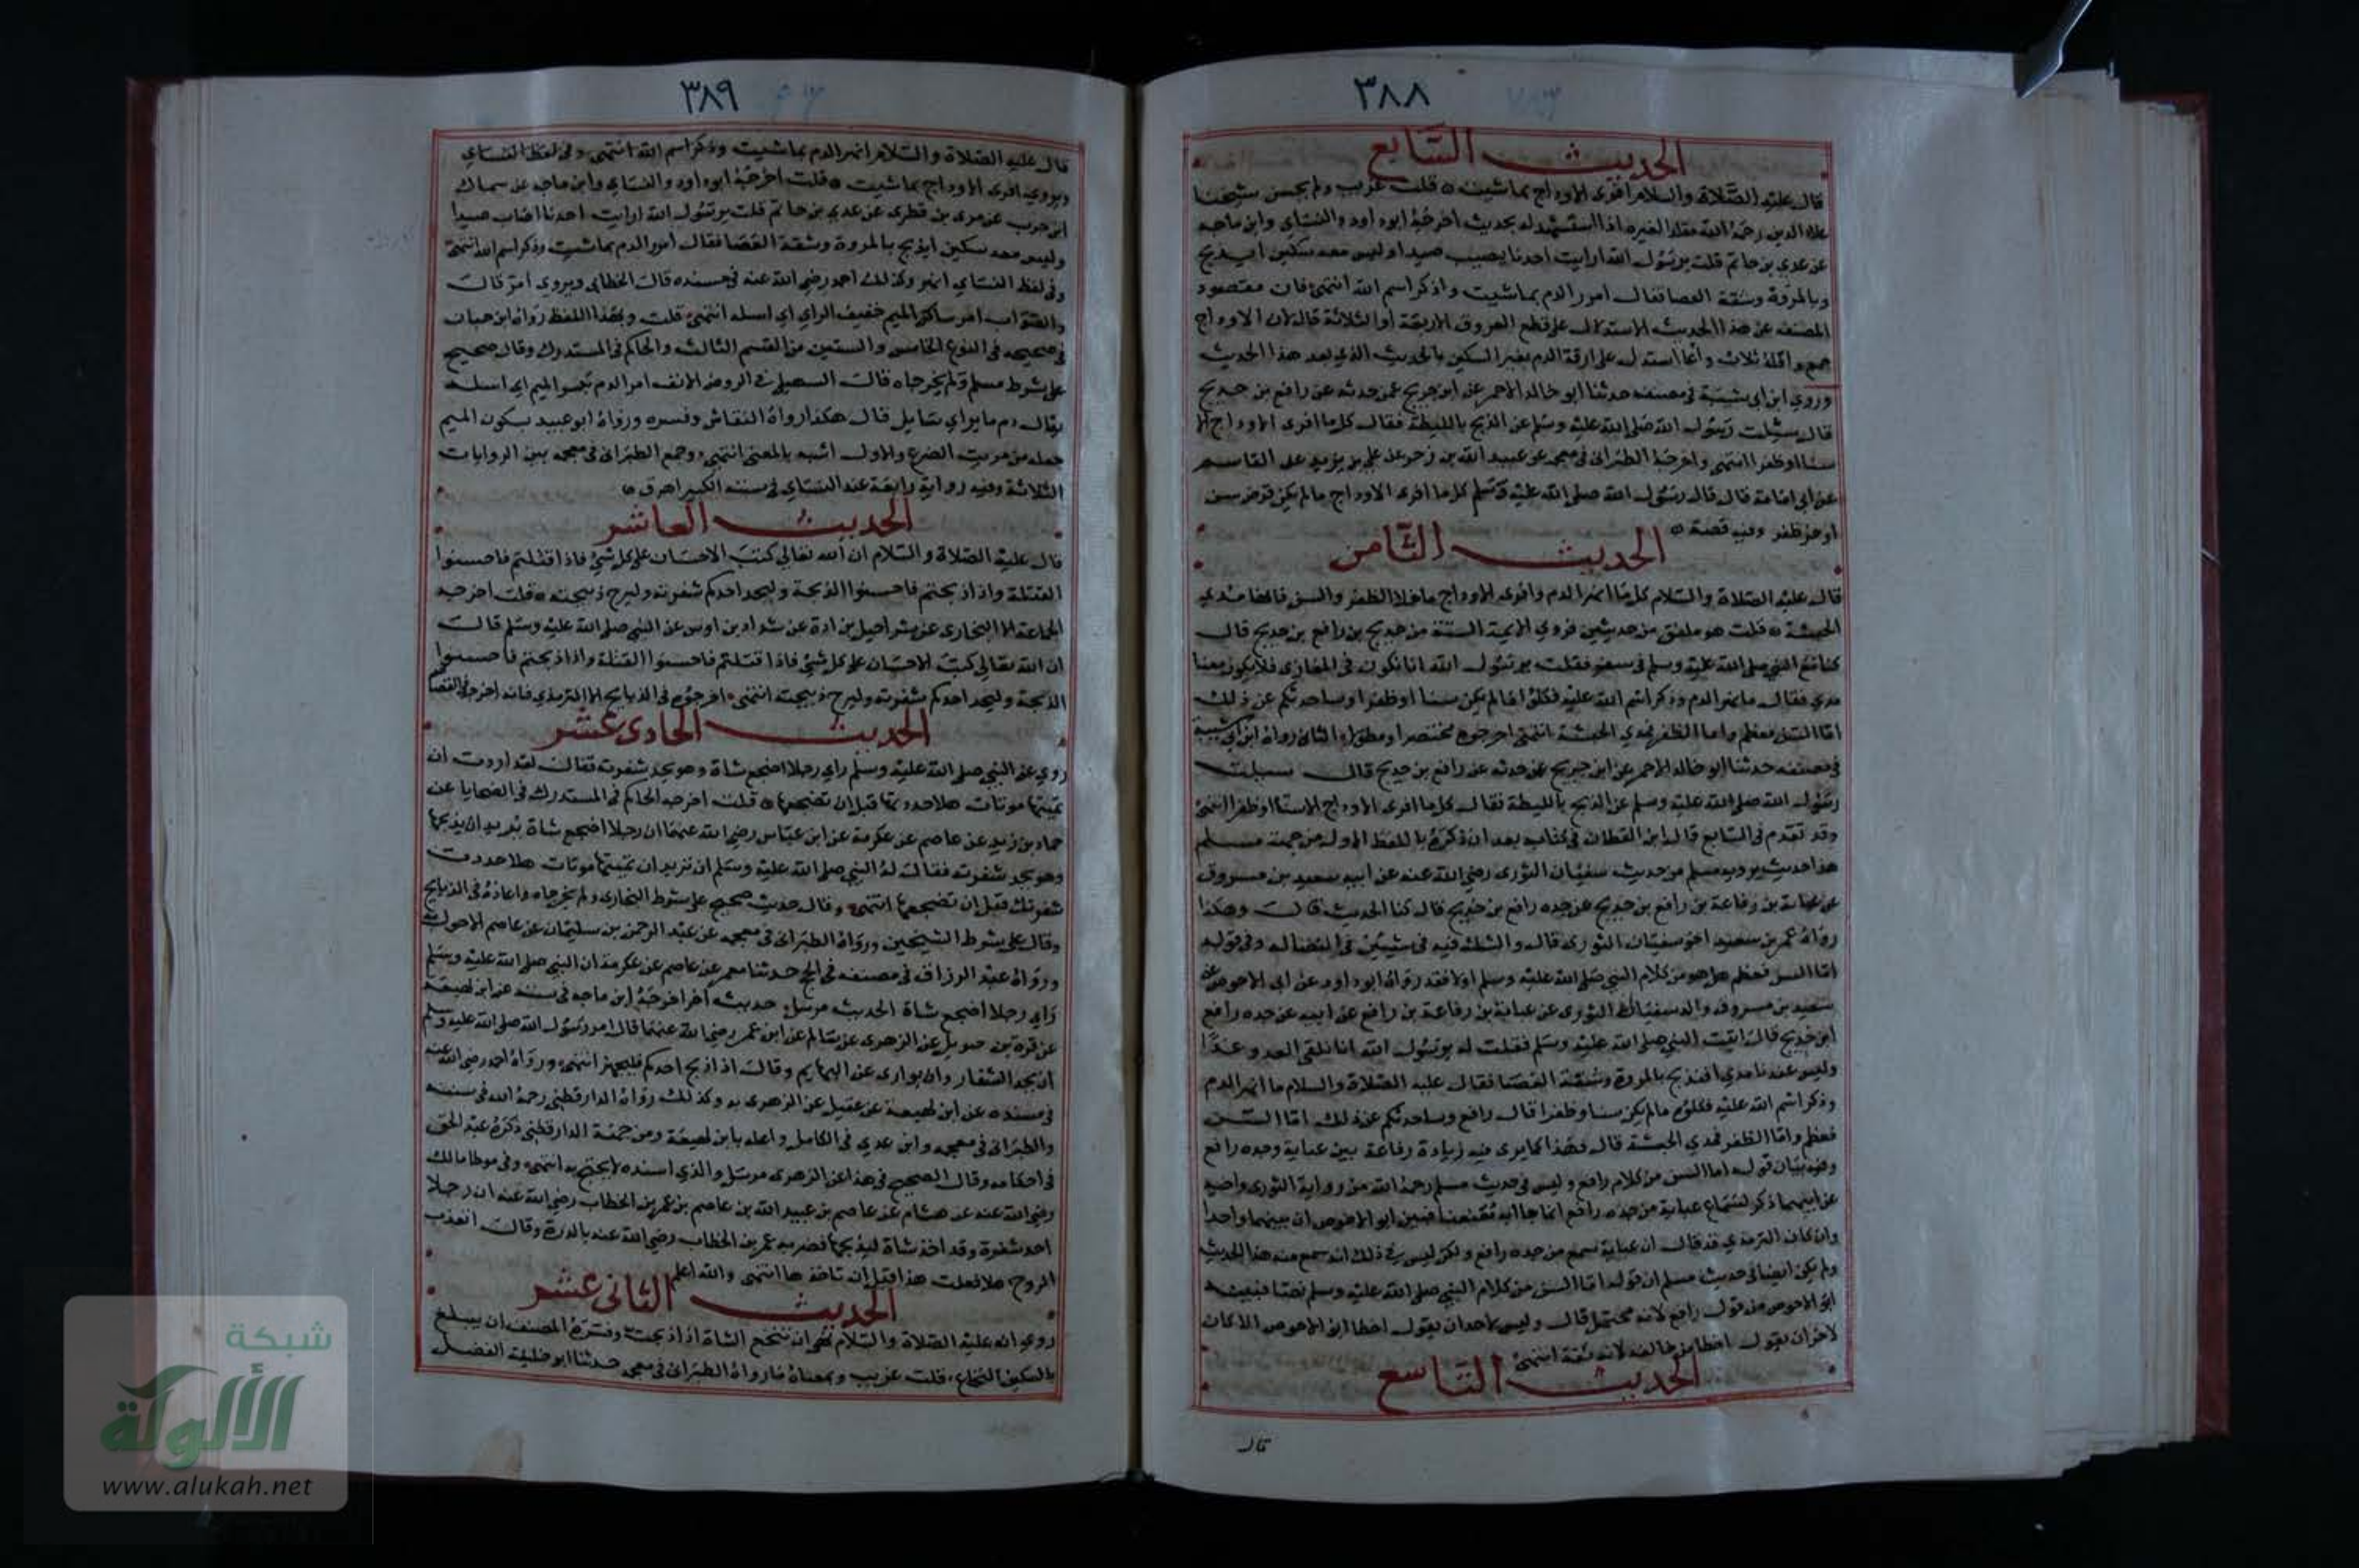 ٣٨٨
الحديث السابع
قال عليه الصلاة والسلام افرى الاوداج بما شيت ه قلت غريب ولم يحسن شيخنا
علاء الدين رحمه الله مقلدا لغيره اذا استشهد له بحديث اخرجه ابو داود والنساى وابن ماجه
عن عدي بن حاتم قلت يرسول الله ارايت احدنا يصيب صيدا وليس معه سكين ايذبح
وبالمروة وشقة العصا فقال امور الدم بما شيت واذكر اسم الله انتهى فان مقصود
المصنف من هذا الحديث الاستدلال على قطع العروق الاربعة او الثلاثة قال لان الاوداج
جمع واقله ثلاث وانما استدل على اراقة الدم بغير السكين بالحديث الذي بعد هذا الحديث
وروي ابن ابى شيبة في مصنفه حدثنا ابو خالد الاحمر عن ابن جريج عمن حدثه عن رافع بن خديج
قال سئلت رسول الله صلى الله عليه وسلم عن الذبح بالليطة فقال كل ما افرى الاوداج الا
سنا او ظفرا انتهى واخرجه الطبرانى في معجمه عن عبيد الله بن زحر عن علي بن يزيد عن القاسم
عن ابي امامة قال قال رسول الله صلى الله عليه وسلم كل ما افرى الاوداج ما لم يكن قرض سن
او حز ظفر وفيه قصة ه
الحديث الثامن
قال عليه الصلاة والسلام كل ما انهر الدم وافرى الاوداج ما خلا الظفر والسن فانها مدي
الحبشة ه قلت هو ملفق من حديثين فروي الايمة الستة من حديث رافع بن خديج قال
كنا مع النبي صلى الله عليه وسلم في سفر فقلت يرسول الله انا نكون في المغازى فلا يكون معنا
مدي فقال ما انهر الدم وذكر اسم الله عليه فكلوا ما لم يكن سنا او ظفرا وساحدثكم عن ذلك
اما السن فعظم واما الظفر فمدي الحبشة انتهى اخرجوه مختصرا ومطولا الثانى رواه ابن ابي شيبة
في مصنفه حدثنا ابو خالد الاحمر عن ابن جريج عمن حدثه عن رافع بن خديج قال سيلت
رسول الله صلى الله عليه وسلم عن الذبح بالليطة فقال كل ما افرى الاوداج الا سنا او ظفرا انتهى
وقد تقدم في السابع قال ابن القطان في كتابه بعد ان ذكره باللفظ الاول من جهة مسلم
هذا حديث يرويه مسلم من حديث سفيان الثورى رضي الله عنه عن ابيه سعيد بن مسروق
عن عباية بن رفاعة بن رافع بن خديج عن جده رافع بن خديج قال كنا الحديث قال وهكذا
رواه عمر بن سعيد اخو سفيان الثورى قال والشك فيه في شيئين في اتصاله وفي قوله
اما السن فعظم هل هو من كلام النبي صلى الله عليه وسلم اولا فقد رواه ابو داود عن ابى الاحوص عن
سعيد بن مسروق والد سفيان الثورى عن عباية بن رفاعة بن رافع عن ابيه عن جده رافع
ابن خديج قال اتيت النبي صلى الله عليه وسلم فقلت له يرسول الله انا نلقى العدو غدا
وليس عندنا مدي افنذبح بالمروة وشقة العصا فقال عليه الصلاة والسلام ما انهر الدم
وذكر اسم الله عليه فكلوه ما لم يكن سنا وظفرا قال رافع وساحدثكم عن ذلك اما السن
فعظم واما الظفر فمدي الحبشة قال فهذا كما يرى فيه زيادة رفاعة بين عباية وجده رافع
وفيه بيان قوله اما السن من كلام رافع وليس في حديث مسلم رحمه الله من رواية الثورى واخيه
عن ابيهما ذكر لسماع عباية من جده رافع انما جاآ به معنعنا فبين ابو الاحوص ان بينهما واحدا
وان كان الترمذي قد قال ان عباية سمع من جده رافع ولكن ليس في ذلك انه سمع منه هذا الحديث
ولم يكن ايضا في حديث مسلم ان قوله اما السن من كلام النبي صلى الله عليه وسلم نصا فبينه
ابو الاحوص من قول رافع لانه محتمل قال وليس لاحد ان يقول اخطا ابو الاحوص الا كان
لاخر ان يقول اخطا من خالفه لانه ثقة انتهى
الحديث التاسع
قال
٣٨٩
قال عليه الصلاة والسلام انهر الدم بما شيت وذكر اسم الله انتهى وفي لفظ النساي
ويروى افرى الاوداج بما شيت ه قلت اخرجه ابو داود والنساي وابن ماجه عن سماك
ابن حرب عن مرى بن قطرى عن عدي بن حاتم قلت يرسول الله ارايت احدنا اصاب صيدا
وليس معه سكين ايذبح بالمروة وشقة العصا فقال امور الدم بما شيت وذكر اسم الله انتهى
وفي لفظ النساي انهر وكذلك احمد رضي الله عنه في مسنده قال الخطابى ويروى امر قال
والصواب امر ساكن الميم خفيف الراي اي اسله انتهى قلت وبهذا اللفظ رواه ابن حبان
في صحيحه في النوع الخامس والستين من القسم الثالث والحاكم في المستدرك وقال صحيح
على شرط مسلم ولم يخرجاه قال السهيلى في الروض الانف امر الدم بكسر الميم اي اسله
يقال دم ماير اي سايل قال هكذا رواه النقاش وفسره ورواه ابو عبيد بسكون الميم
جعله من مريت الضرع والاول اشبه بالمعنى انتهى وجمع الطبرانى في معجمه بين الروايات
الثلاثة وفيه رواية رابعة عند النساي في سننه الكبير اهرق ه
الحديث العاشر
قال عليه الصلاة والسلام ان الله تعالي كتب الاحسان على كل شيئ فاذا قتلتم فاحسنوا
القتلة واذا ذبحتم فاحسنوا الذبحة وليحد احدكم شفرته وليرح ذبيحته ه قلت اخرجه
الجماعة الا البخارى عن شراحيل بن ادة عن شداد بن اوس عن النبي صلى الله عليه وسلم قال
ان الله تعالى كتب الاحسان على كل شيئ فاذا قتلتم فاحسنوا القتلة واذا ذبحتم فاحسنوا
الذبحة وليحد احدكم شفرته وليرح ذبيحته انتهى اخرجوه في الذبايح الا الترمذي فانه اخرجه في القصاص
الحديث الحادى عشر
روي عن النبي صلى الله عليه وسلم راي رجلا اضجع شاة وهو يحد شفرته فقال لقد اردت ان
تميتها موتات هلا حددتها قبل ان تضجعها ه قلت اخرجه الحاكم في المستدرك في الضحايا عن
حماد بن زيد عن عاصم عن عكرمة عن ابن عباس رضي الله عنهما ان رجلا اضجع شاة يريد ان يذبحها
وهو يحد شفرته فقال له النبي صلى الله عليه وسلم ان تريد ان تميتها موتات هلا حددت
شفرتك قبل ان تضجعها انتهى وقال حديث صحيح على شرط البخارى ولم يخرجاه واعاده في الذبايح
وقال على شرط الشيخين ورواه الطبرانى في معجمه عن عبد الرحمن بن سليمان عن عاصم الاحول به
ورواه عبد الرزاق في مصنفه في الحج حدثنا معمر عن عاصم عن عكرمة ان النبي صلى الله عليه وسلم
راي رجلا اضجع شاة الحديث مرسل حديث اخر اخرجه ابن ماجه في سننه عن ابن لهيعة
عن قرة بن حيويل عن الزهرى عن سالم عن ابن عمر رضي الله عنهما قال امر رسول الله صلى الله عليه وسلم
ان يحد الشفار وان يوارى عن البهايم وقال اذا ذبح احدكم فليجهز انتهى ورواه احمد رضي الله عنه
في مسنده عن ابن لهيعة عن عقيل عن الزهرى به وكذلك رواه الدارقطني رحمه الله في سننه
والطبرانى في معجمه وابن عدي في الكامل واعله بابن لهيعة ومن جهة الدارقطنى ذكره عبد الحق
في احكامه وقال الصحيح في هذا عن الزهرى مرسل والذي اسنده لا يحتج به انتهى وفي موطا مالك
رضي الله عنه عن هشام عن عاصم بن عبيد الله بن عاصم بن عمر بن الخطاب رضي الله عنه ان رجلا
احد شفرة وقد اخذ شاة ليذبحها فضربه عمر بن الخطاب رضي الله عنه بالدرة وقال اتعذب
الروح هلا فعلت هذا قبل ان تاخذها انتهى والله اعلم
الحديث الثانى عشر
روي انه عليه الصلاة والسلام نهى ان تنخع الشاة اذا ذبحت وفسره المصنف ان يبلغ
بالسكين النخاع قلت غريب وبمعناه ما رواه الطبرانى في معجمه حدثنا ابو خليفة الفضل
شبكة
الألوكة
www.alukah.net